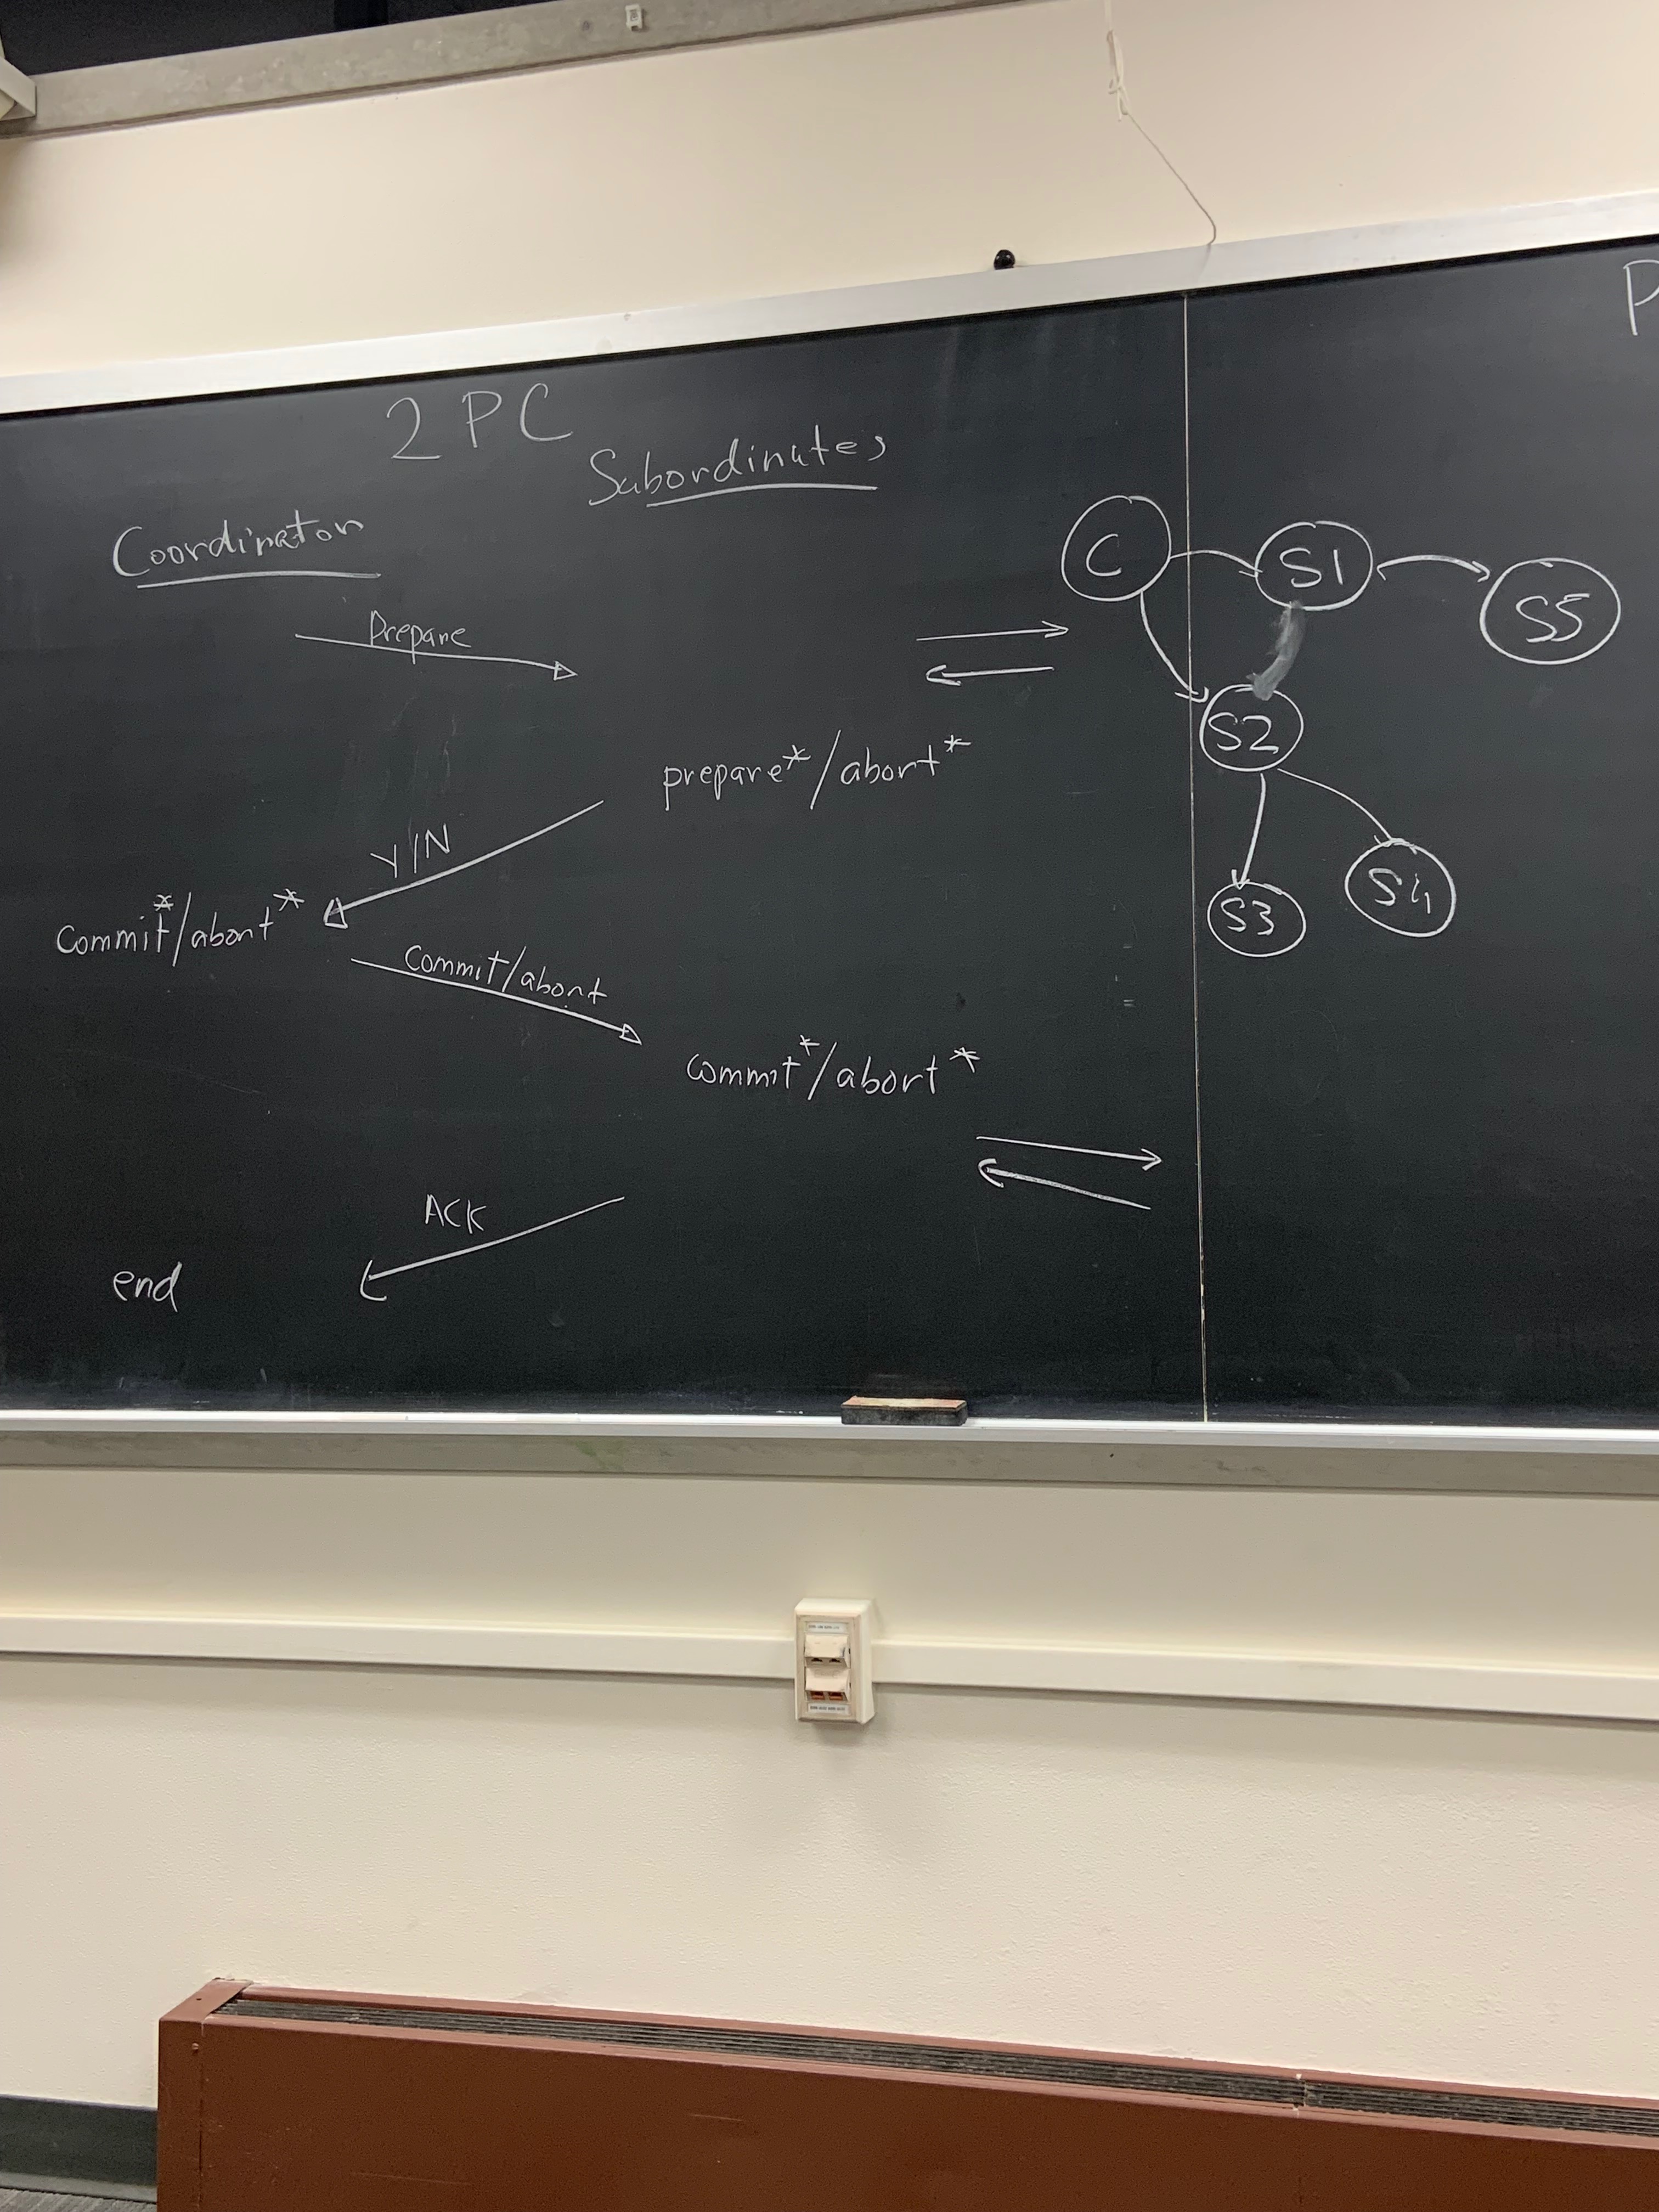 2 PC
Coordinator
Subordinates
Prepare
prepare*/abort*
Y/N
Commit*/abort*
Commit/abort
commit*/abort*
ACK
end
C
S1
S5
S2
S3
S4
P